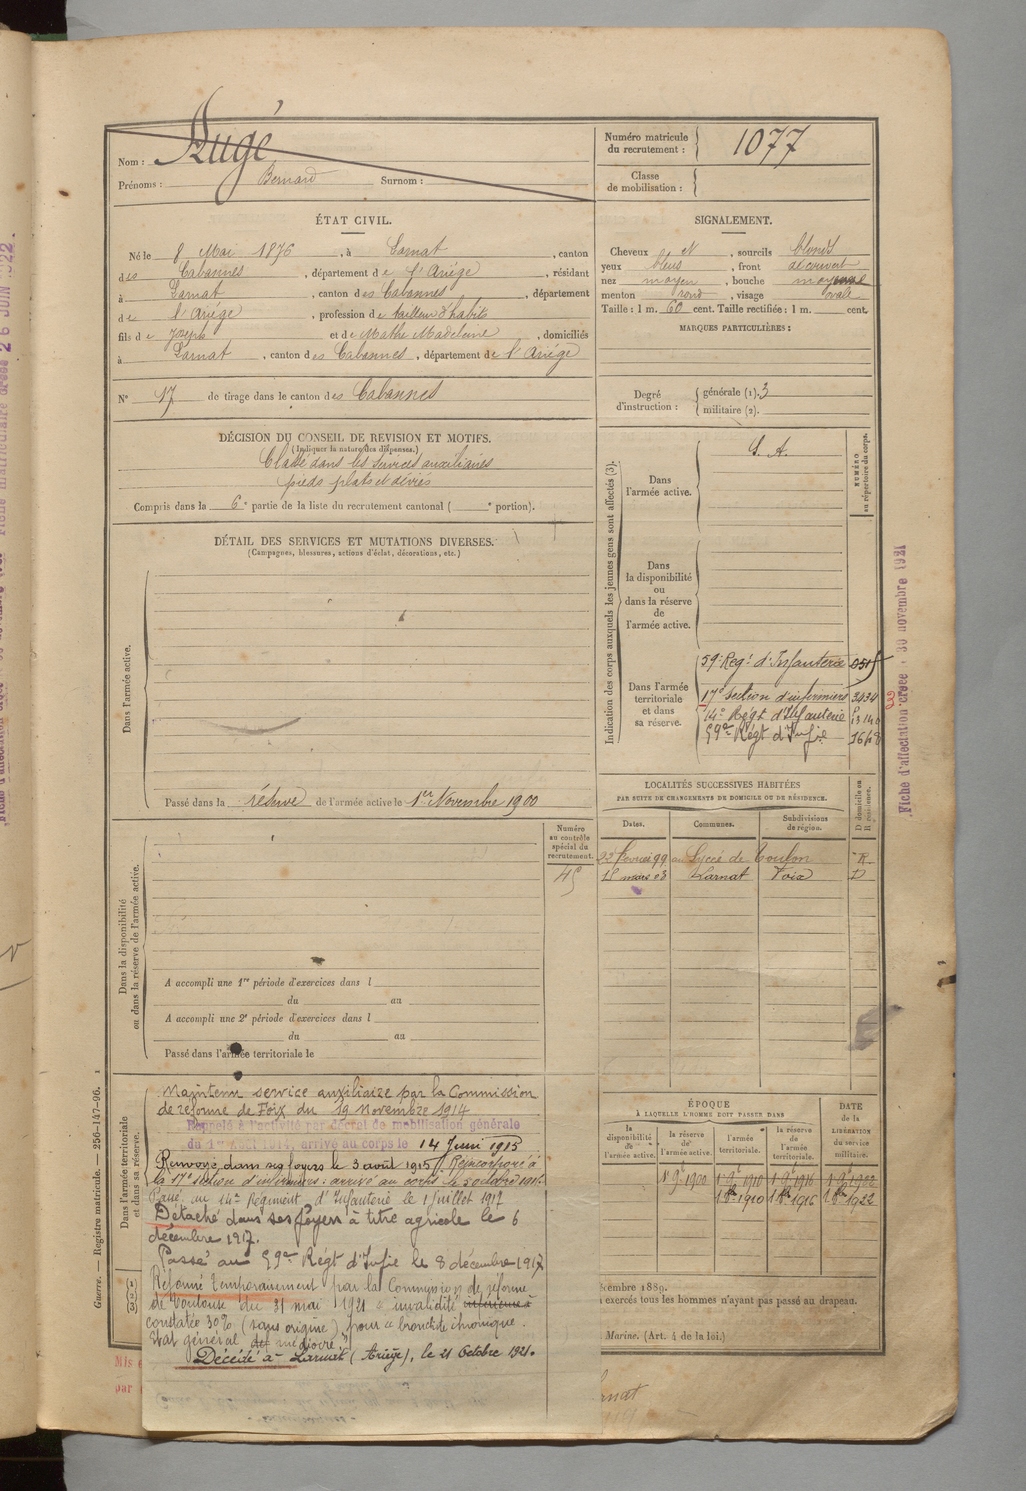 Nom : Augé
Prénoms : Bernard Surnom :
Numéro matricule du recrutement : 1077
Classe de mobilisation :
ÉTAT CIVIL.
Né le 8 Mai 1876, à Larnat, canton
des Cabannes, département de l'Ariége, résidant
à Larnat, canton des Cabannes, département
de l'Ariége, profession de tailleur d'habits
fils de Joseph et de Mathe Madeleine, domiciliés
à Larnat, canton des Cabannes, département de l'Ariége
N° 17 de tirage dans le canton des Cabannes
SIGNALEMENT.
Cheveux N, sourcils blonds
yeux bleus, front découvert
nez moyen, bouche moyenne
menton rond, visage ovale
Taille : 1 m. 60 cent. Taille rectifiée : 1 m. cent.
MARQUES PARTICULIÈRES :
Degré d'instruction :
générale (1). 3
militaire (2).
DÉCISION DU CONSEIL DE REVISION ET MOTIFS.
(Indiquer la nature des dispenses.)
Classé dans les services auxiliaires
pieds plats et déviés
Compris dans la 6e partie de la liste du recrutement cantonal ( e portion).
DÉTAIL DES SERVICES ET MUTATIONS DIVERSES.
(Campagnes, blessures, actions d'éclat, décorations, etc.)
Dans l'armée active.
Passé dans la réserve de l'armée active le 1er Novembre 1900
Indication des corps auxquels les jeunes gens sont affectés (3).
NUMÉRO au répertoire du corps.
Dans l'armée active.
S. A.
Dans la disponibilité ou dans la réserve de l'armée active.
Dans l'armée territoriale et dans sa réserve.
59e Regt d'Infanterie
17e section d'infirmiers 3434
14e Régt d'Infanterie
59e Régt d'Infie
LOCALITÉS SUCCESSIVES HABITÉES
PAR SUITE DE CHANGEMENTS DE DOMICILE OU DE RÉSIDENCE.
D domicile ou R résidence.
Dates. Communes. Subdivisions de région.
22 février 99 au Lycée de Toulon R
15 mars 03 Larnat Foix D
Dans la disponibilité ou dans la réserve de l'armée active.
Numéro au contrôle spécial du recrutement.
45
A accompli une 1re période d'exercices dans l
du au
A accompli une 2e période d'exercices dans l
du au
Passé dans l'armée territoriale le
Dans l'armée territoriale et dans sa réserve.
Maintenu service auxiliaire par la Commission
de réforme de Foix du 19 Novembre 1914
Rappelé à l'activité par décret de mobilisation générale
du 1er Août 1914, arrivé au corps le 14 Juin 1915
Renvoyé dans ses foyers le 3 août 1915. Réincorporé à
la 17e section d'infirmiers : arrivé au corps le 5 octobre 1915.
Passé au 14e Régiment d'Infanterie le 1 juillet 1917
Détaché dans ses foyers à titre agricole le 6
décembre 1917.
Passé au 59e Régt d'Infie le 8 décembre 1917
Réformé temporairement par la Commission de réforme
de Toulouse du 31 mai 1921 invalidité
constatée 30% (sans origine) pour « bronchite chronique.
Etat général médiocre »
Décédé à Larnat (Ariège), le 21 Octobre 1921.
ÉPOQUE
À LAQUELLE L'HOMME DOIT PASSER DANS
DATE de la LIBÉRATION du service militaire.
la disponibilité de l'armée active. la réserve de l'armée active. l'armée territoriale. la réserve de l'armée territoriale.
1 9e 1900 1 9e 1910 1 9e 1916 1 9e 1922
1 8bre 1910 1 8bre 1916 1 8bre 1922
écembre 1889.
exercés tous les hommes n'ayant pas passé au drapeau.
Marine. (Art. 4 de la loi.)
(1)
(2)
(3)
Mis
par
Guerre. — Registre matricule. — 256-147-96.
Fiche d'affectation créée 30 novembre 1921
26 JUIN 1922